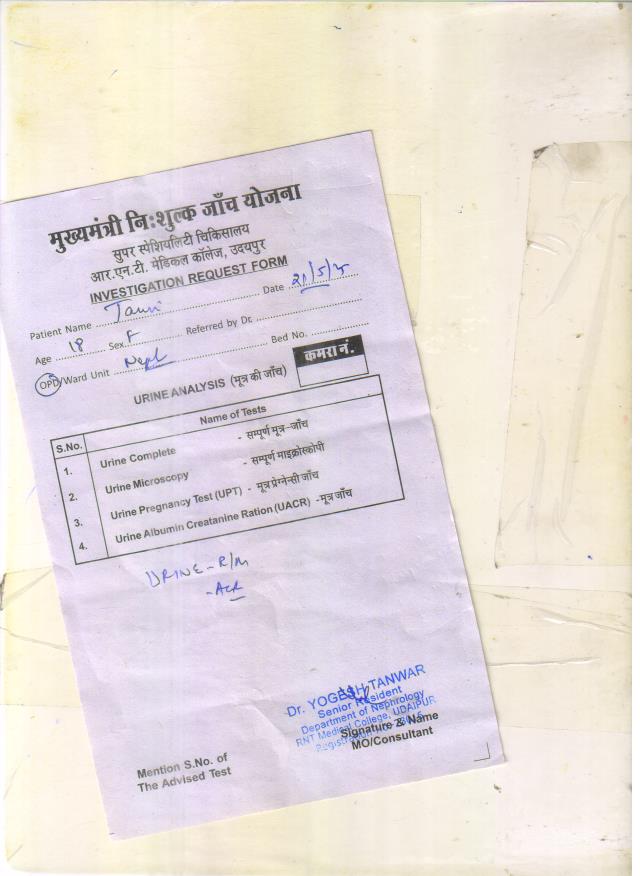 मुख्यमंत्री निःशुल्क जाँच योजना
सुपर स्पेशियलिटी चिकित्सालय
आर.एन.टी. मेडिकल कॉलेज, उदयपुर
INVESTIGATION REQUEST FORM
Patient Name Date 21/5/25
Age 18 Sex F Referred by Dr.
OPD/Ward Unit Neph Bed No.
URINE ANALYSIS (मूत्र की जाँच) कमरा नं.
S.No. Name of Tests
1. Urine Complete - सम्पूर्ण मूत्र-जाँच
2. Urine Microscopy - सम्पूर्ण माइक्रोस्कोपी
3. Urine Pregnancy Test (UPT) - मूत्र प्रेग्नेन्सी जाँच
4. Urine Albumin Creatanine Ration (UACR) -मूत्र जाँच
URINE - R/M
- ACR
Dr. YOGESH TANWAR
Senior Resident
Department of Nephrology
RNT Medical College, UDAIPUR
Signature & Name
MO/Consultant
Mention S.No. of
The Advised Test